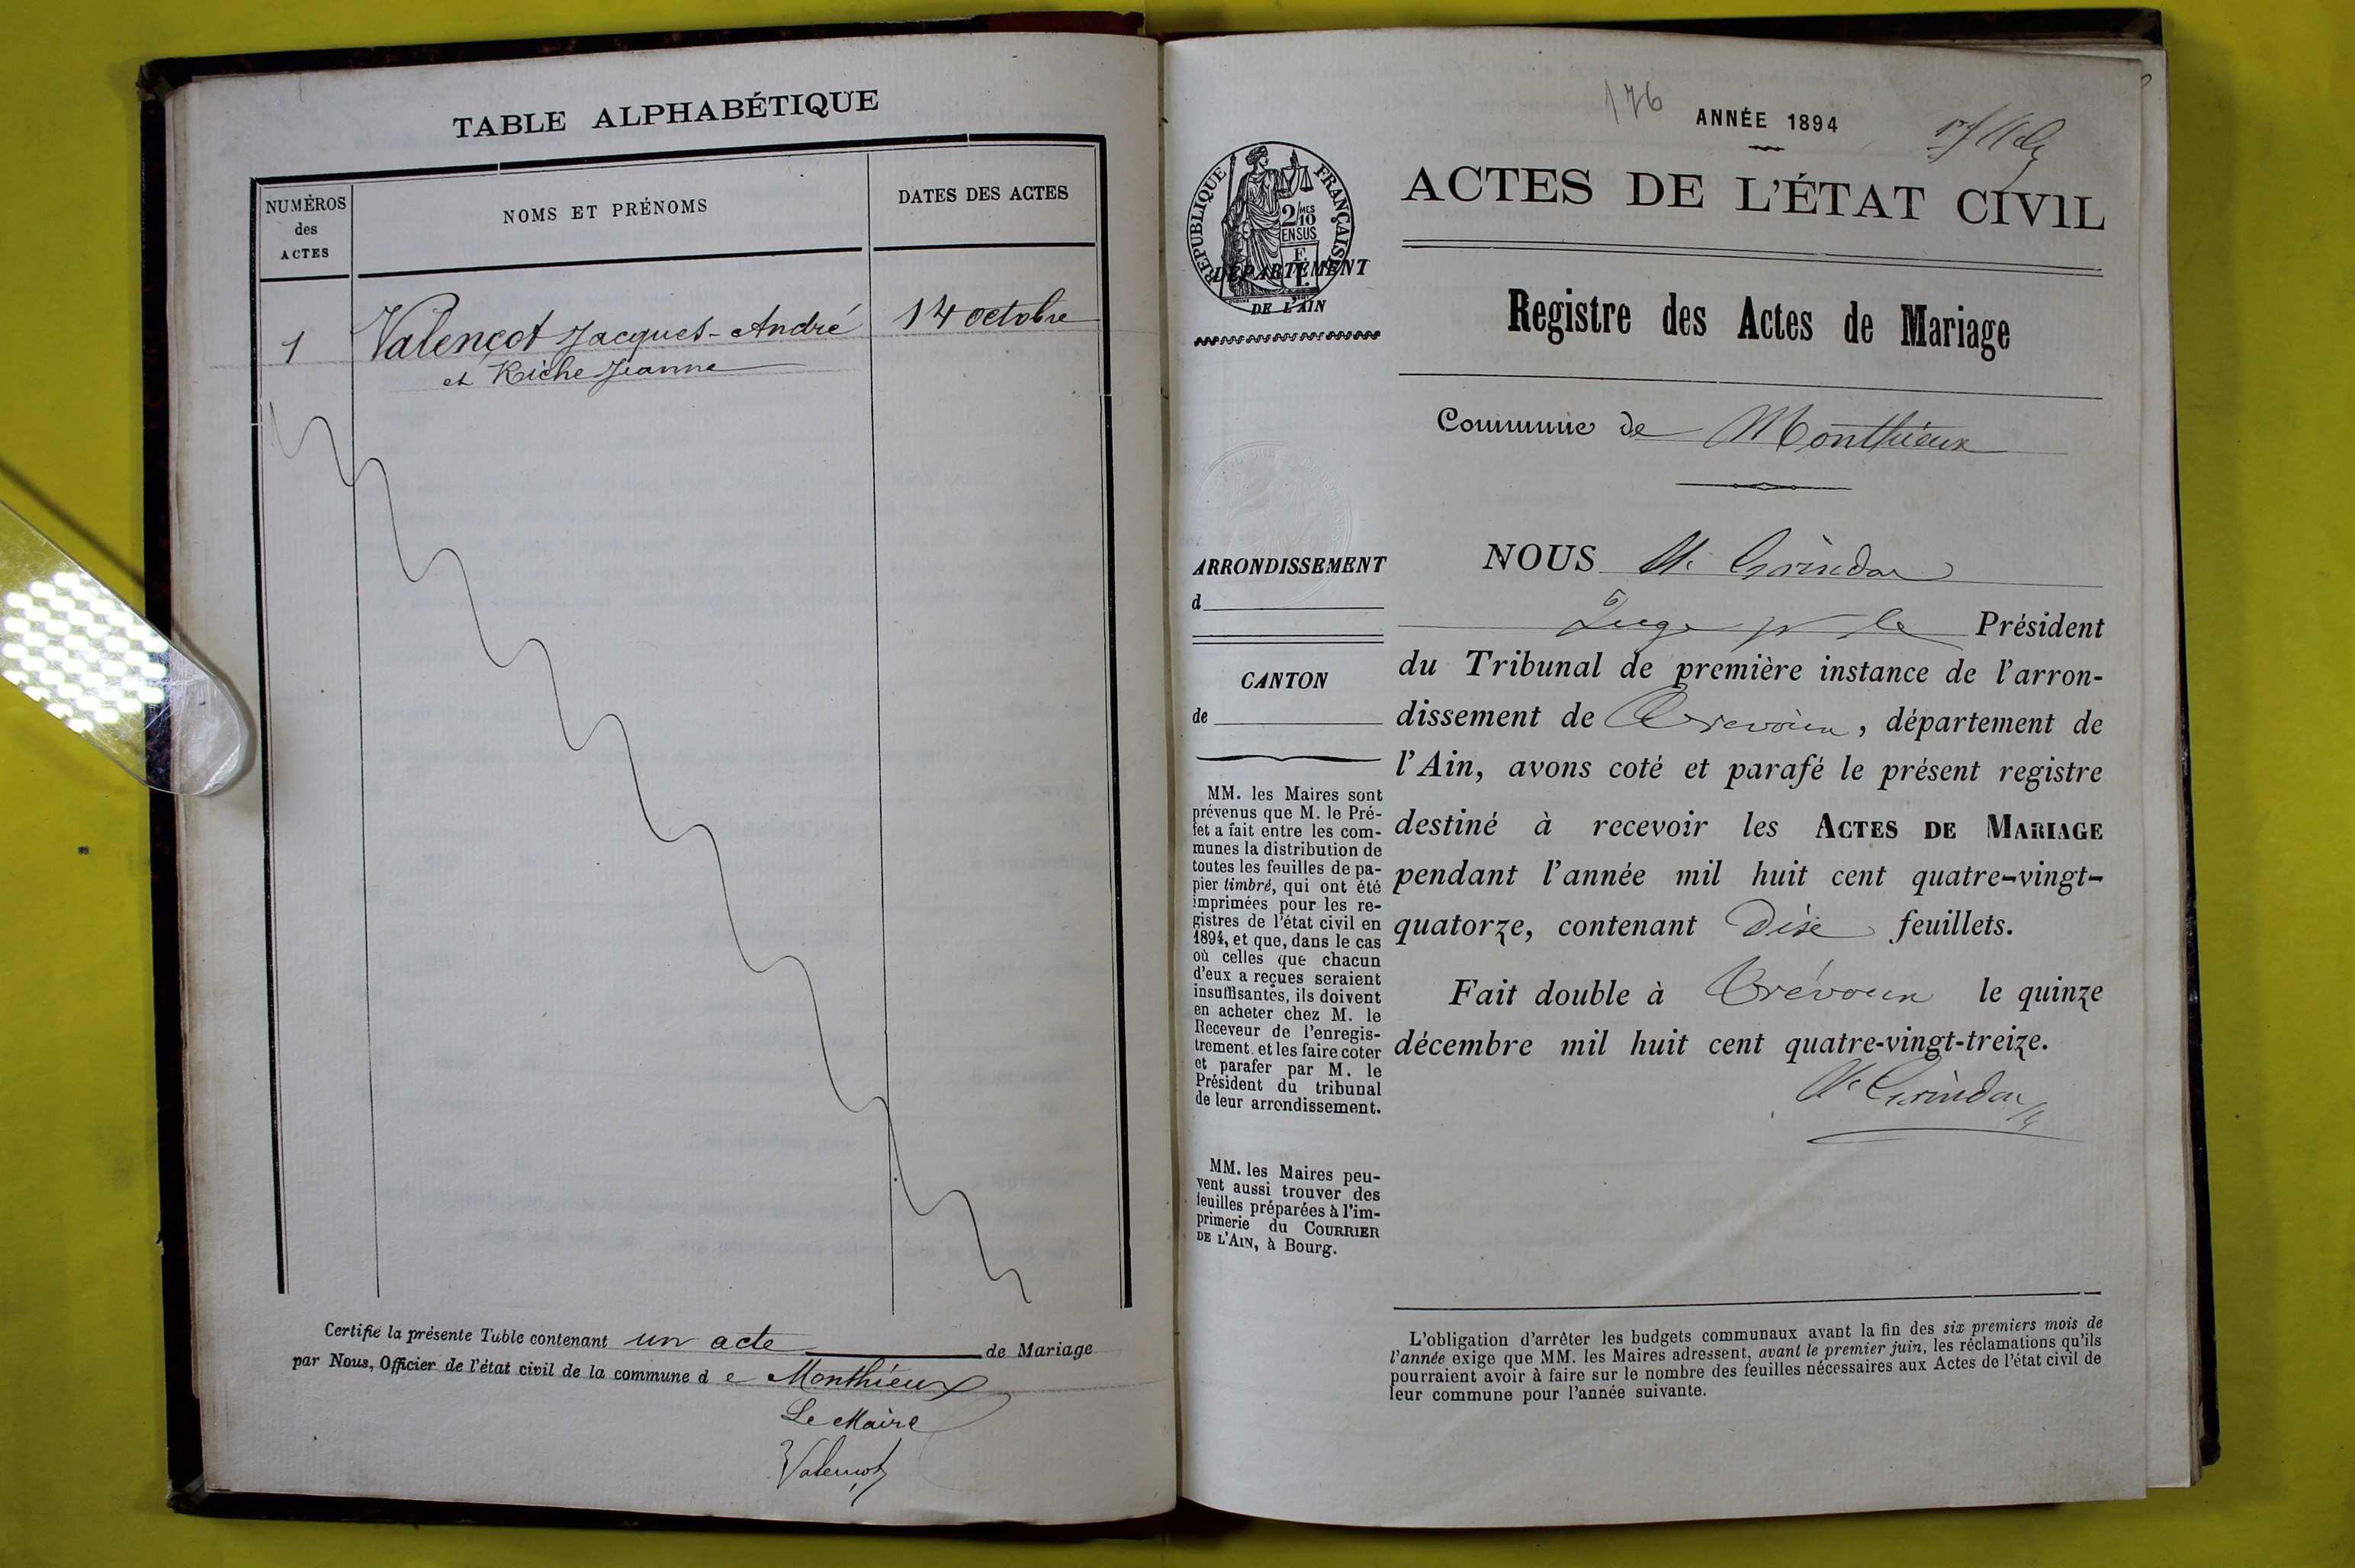 TABLE ALPHABÉTIQUE
NUMÉROS
des
ACTES
NOMS ET PRÉNOMS
DATES DES ACTES
1
Valençot Jacques-André
14 octobre
et Riche Jeanne
Certifié la présente Table contenant un acte de Mariage
par Nous, Officier de l'état civil de la commune d e Monthieux
Le Maire
Valençot
176
ANNÉE 1894
ACTES DE L'ÉTAT CIVIL
RÉPUBLIQUE FRANÇAISE
2/10 MES
EN SUS
DÉPARTEMENT
DE L'AIN
Registre des Actes de Mariage
Commune de Monthieux
ARRONDISSEMENT
d
CANTON
de
MM. les Maires sont
prévenus que M. le Pré-
fet a fait entre les com-
munes la distribution de
toutes les feuilles de pa-
pier timbré, qui ont été
imprimées pour les re-
gistres de l'état civil en
1894, et que, dans le cas
où celles que chacun
d'eux a reçues seraient
insuffisantes, ils doivent
en acheter chez M. le
Receveur de l'enregis-
trement et les faire coter
et parafer par M. le
Président du tribunal
de leur arrondissement.
MM. les Maires peu-
vent aussi trouver des
feuilles préparées à l'im-
primerie du COURRIER
DE L'AIN, à Bourg.
NOUS
Juge pr le Président
du Tribunal de première instance de l'arron-
dissement de Trévoux, département de
l'Ain, avons coté et parafé le présent registre
destiné à recevoir les ACTES DE MARIAGE
pendant l'année mil huit cent quatre-vingt-
quatorze, contenant Dix feuillets.
Fait double à Trévoux le quinze
décembre mil huit cent quatre-vingt-treize.
L'obligation d'arrêter les budgets communaux avant la fin des six premiers mois de
l'année exige que MM. les Maires adressent, avant le premier juin, les réclamations qu'ils
pourraient avoir à faire sur le nombre des feuilles nécessaires aux Actes de l'état civil de
leur commune pour l'année suivante.